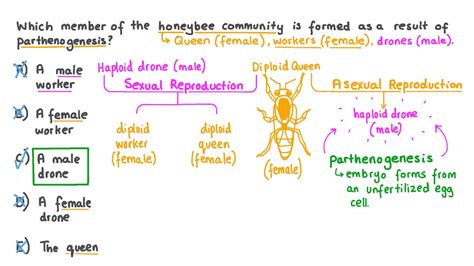 Which member of the honeybee community is formed as a result of
parthenogenesis? Queen (female), workers (female), drones (male).
A) A male
worker
B) A female
worker
C) A male
drone
D) A female
drone
E) The queen
Haploid drone (male)
Diploid Queen
Sexual Reproduction
Asexual Reproduction
diploid
worker
(female)
diploid
queen
(female)
(female)
haploid drone
(male)
parthenogenesis
embryo forms from
an unfertilized egg
cell.